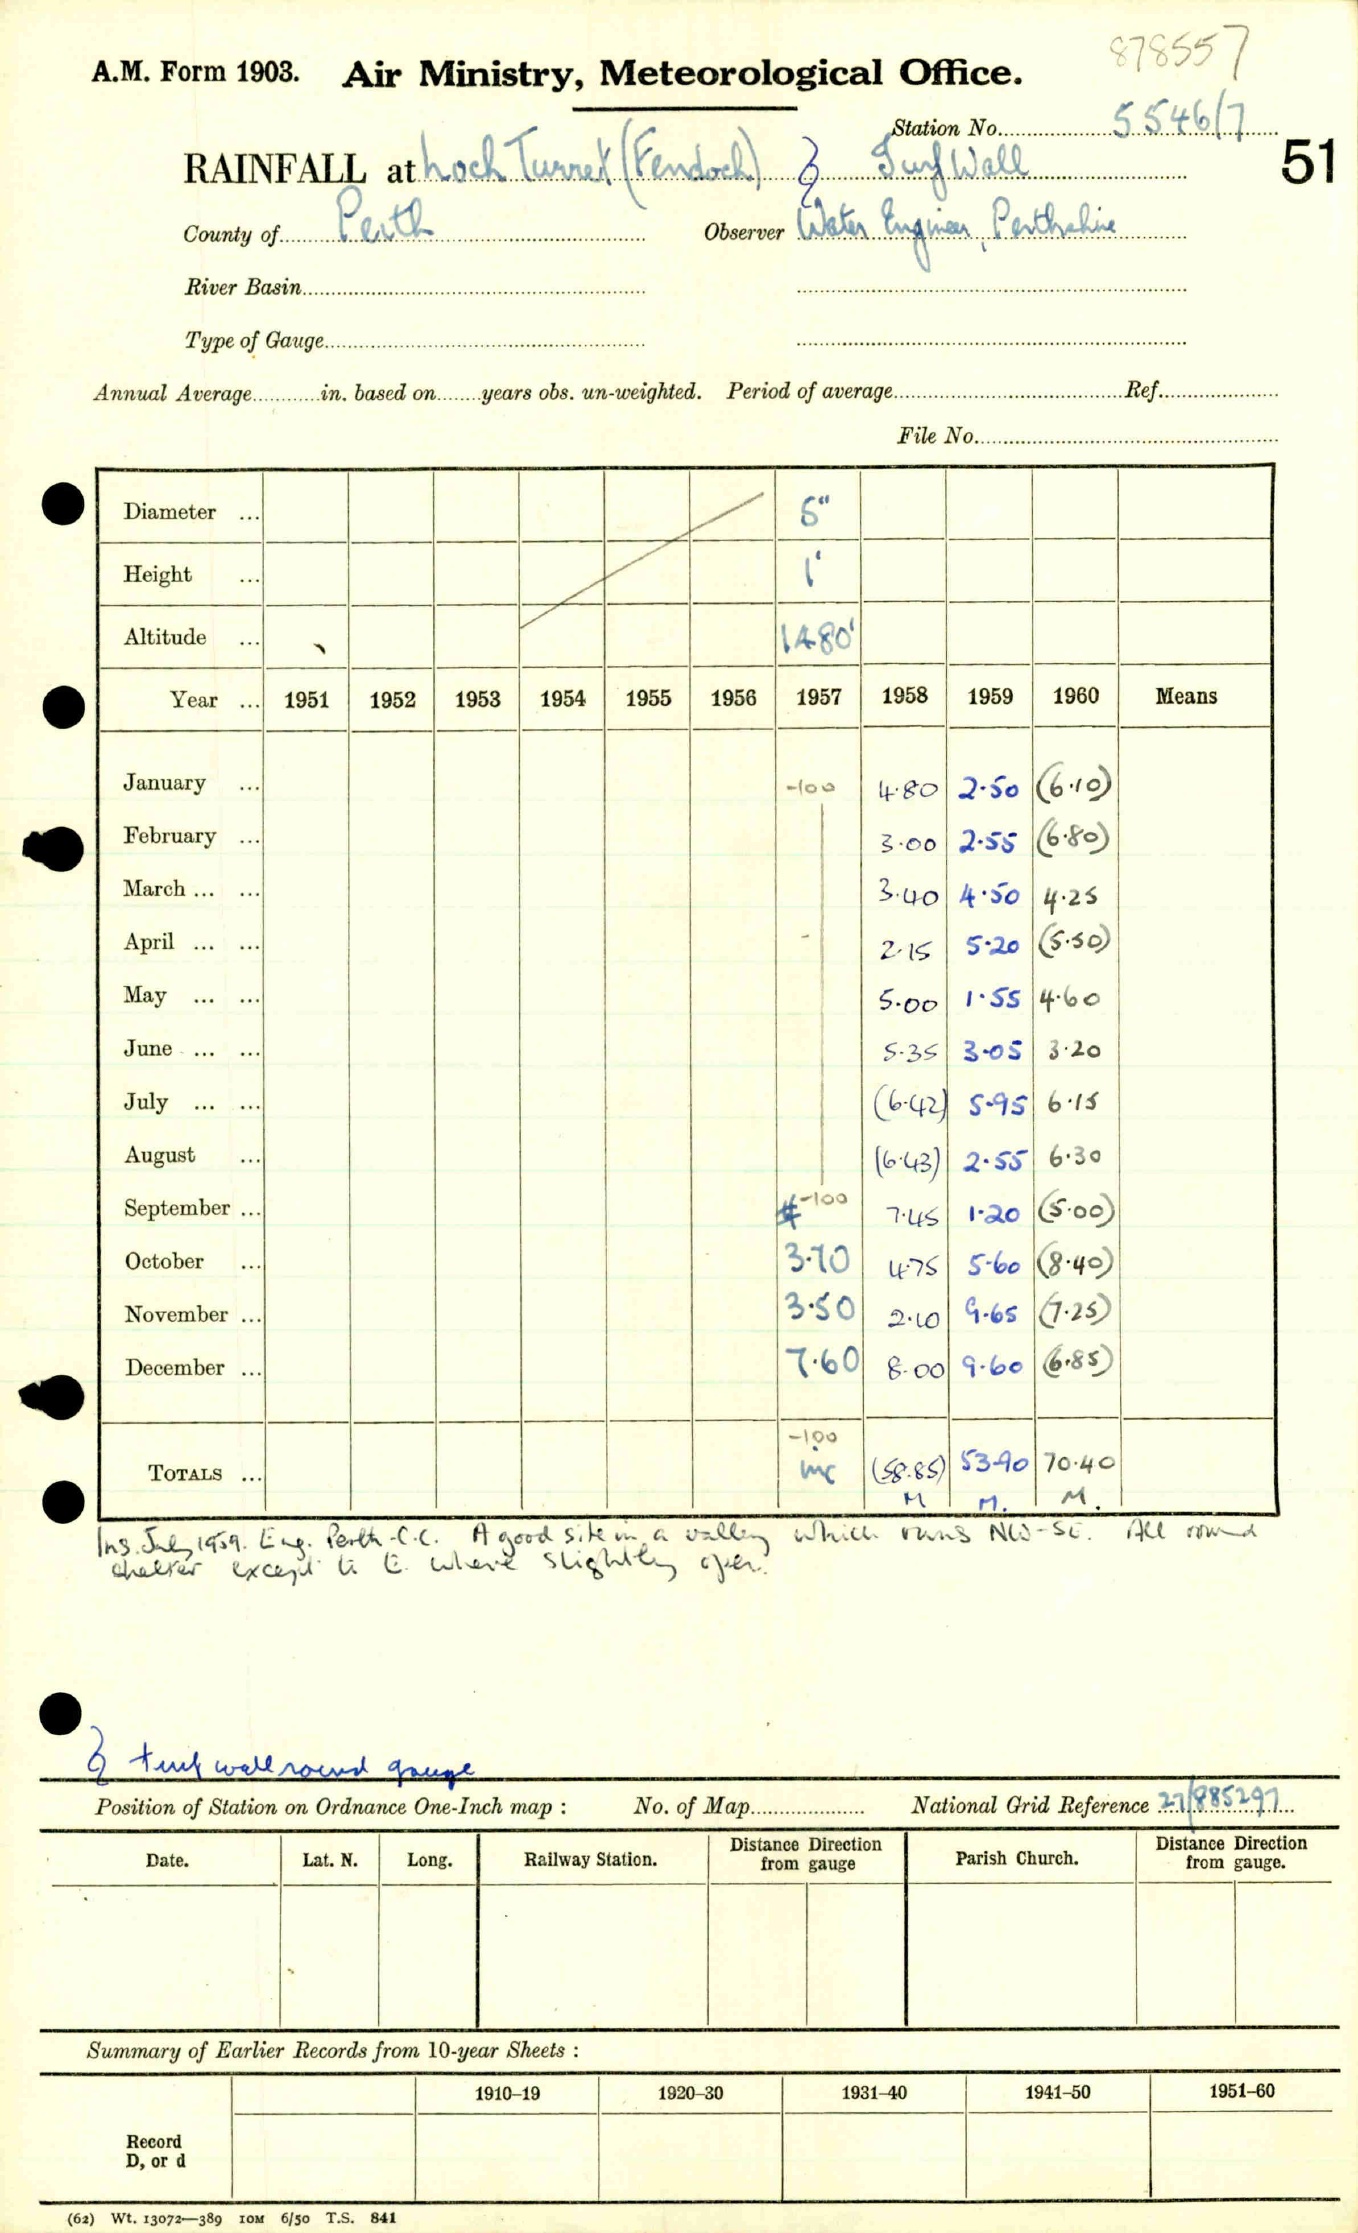 878557
A.M. Form 1903. Air Ministry, Meteorological Office.
Station No. 5546/7
RAINFALL at Loch Turret (Fendoch) Turf Wall
51
County of Perth Observer Water Engineer, Perthshire
River Basin
Type of Gauge
Annual Average in. based on years obs. un-weighted. Period of average Ref.
File No.
Diameter ... 5"
Height ... 1'
Altitude ... 1480'
Year ... 1951 1952 1953 1954 1955 1956 1957 1958 1959 1960 Means
January ... -100 4.80 2.50 (6.10)
February ... 3.00 2.55 (6.80)
March ... ... 3.40 4.50 4.25
April ... ... - 2.15 5.20 (5.50)
May ... ... 5.00 1.55 4.60
June ... ... 5.35 3.05 3.20
July ... ... (6.42) 5.95 6.15
August ... (6.43) 2.55 6.30
September ... -100 7.45 1.20 (5.00)
October ... 3.70 4.75 5.60 (8.40)
November ... 3.50 2.10 9.65 (7.25)
December ... 7.60 8.00 9.60 (6.85)
-100
TOTALS ... inc (58.85) 53.90 70.40
M M. M.
Ins. July 1959. Eng. Perth C.C. A good site in a valley which runs NW-SE. All round
shelter except to E. where slightly open.
turf wall round gauge
Position of Station on Ordnance One-Inch map : No. of Map National Grid Reference 27/885297
Date. Lat. N. Long. Railway Station. Distance Direction from gauge Parish Church. Distance Direction from gauge.
Summary of Earlier Records from 10-year Sheets :
1910–19 1920–30 1931–40 1941–50 1951–60
Record
D, or d
(62) Wt. 13072—389 10M 6/50 T.S. 841